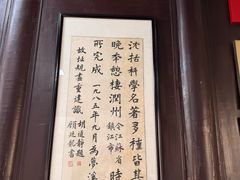 沈括科學名著多種皆其
晚年憩棲潤州今江蘇省鎮江市時
所完成一九八五年九月為夢溪
故址規畫重建識
胡道靜題
顧廷龍書